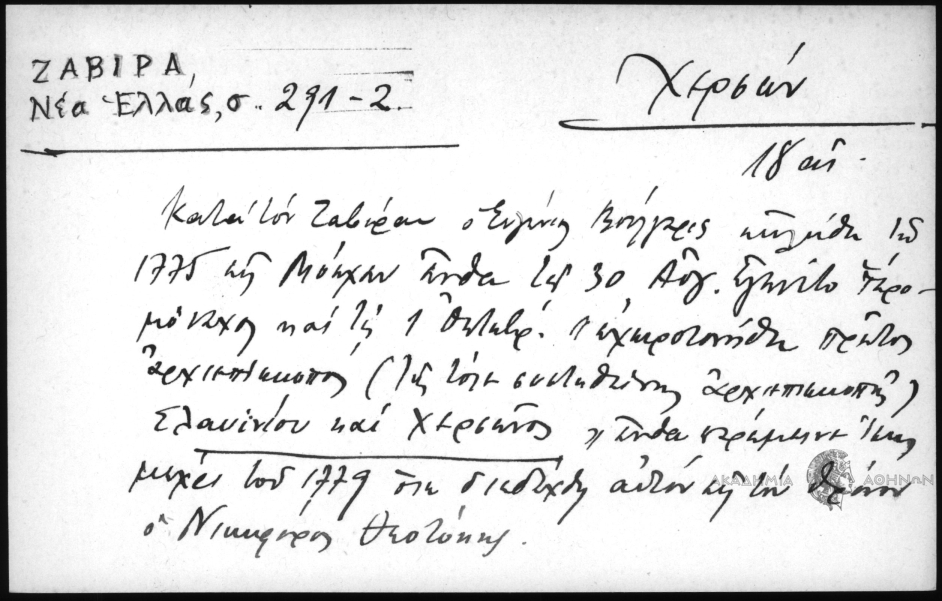 ΖΑΒΙΡΑ,
Νέα Ἑλλάς, σ. 291-2.
Χερσών
18 αἰ.
Κατὰ τὸν Ζαβίραν ὁ Εὐγένιος Βούλγαρις ἐκλήθη τῷ
1775 εἰς Μόσχαν ἔνθα τῇ 30 Αὐγ. ἐγένετο ἱερο-
μόναχος καὶ τῇ 1 Ὀκτωβρ. ἐχειροτονήθη πρῶτος
ἀρχιεπίσκοπος (τῆς τότε συστηθείσης ἀρχιεπισκοπῆς)
Σλαυινίου καὶ Χερσῶνος, ἔνθα παρέμεινε
μέχρι τοῦ 1779 ὅτε διεδέχθη αὐτὸν εἰς τὸν θρόνον
ὁ Νικηφόρος Θεοτόκης.
ΑΚΑΔΗΜΙΑ ΑΘΗΝΩΝ